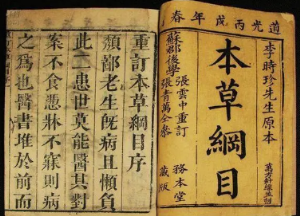 道光丙戌年春
李時珍先生原本
本草綱目
蘇郡後學
張雲中重訂
張青萬仝參
務本堂藏版
重訂本草綱目序
老生既病且懶負
此二患世莫能醫其對
案不食 牀不寐則病
之爲也醫書堆於前而